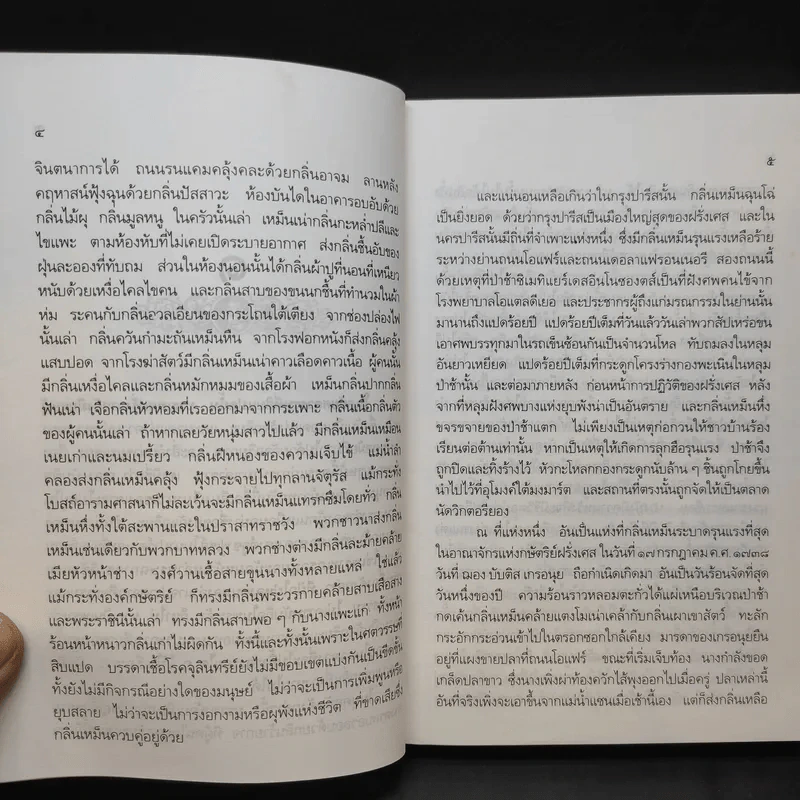 ๔
จินตนาการได้ ถนนรนแคมคลุ้งคละด้วยกลิ่นอาจม ลานหลัง
คฤหาสน์ฟุ้งฉุนด้วยกลิ่นปัสสาวะ ห้องบันไดในอาคารอบอับด้วย
กลิ่นไม้ผุ กลิ่นมูลหนู ในครัวนั้นเล่า เหม็นเน่ากลิ่นกะหล่ำปลีและ
ไขแพะ ตามห้องหับที่ไม่เคยเปิดระบายอากาศ ส่งกลิ่นชื้นอับของ
ฝุ่นละอองที่ทับถม ส่วนในห้องนอนนั้นได้กลิ่นผ้าปูที่นอนที่เหนียว
หนับด้วยเหงื่อไคลไขคน และกลิ่นสาบของขนนกชื้นที่ทำนวมในผ้า
ห่ม ระคนกับกลิ่นอวลเอียนของกระโถนใต้เตียง จากช่องปล่องไฟ
นั้นเล่า กลิ่นควันกำมะถันเหม็นหืน จากโรงฟอกหนังก็ส่งกลิ่นคลุ้ง
แสบปอด จากโรงฆ่าสัตว์มีกลิ่นเหม็นเน่าคาวเลือดคาวเนื้อ ผู้คนนั้น
มีกลิ่นเหงื่อไคลและกลิ่นหมักหมมของเสื้อผ้า เหม็นกลิ่นปากกลิ่น
ฟันเน่า เจือกลิ่นหัวหอมที่เรอออกมาจากกระเพาะ กลิ่นเนื้อกลิ่นตัว
ของผู้คนนั้นเล่า ถ้าหากเลยวัยหนุ่มสาวไปแล้ว มีกลิ่นเหม็นเหมือน
เนยเก่าและนมเปรี้ยว กลิ่นฝีหนองของความเจ็บไข้ แม่น้ำลำ
คลองส่งกลิ่นเหม็นคลุ้ง ฟุ้งกระจายไปทุกลานจัตุรัส แม้กระทั่ง
โบสถ์อารามศาสนาก็ไม่ละเว้นจะมีกลิ่นเหม็นแทรกซึมโดยทั่ว กลิ่น
เหม็นหึ่งทั้งใต้สะพานและในปราสาทราชวัง พวกชาวนาส่งกลิ่น
เหม็นเช่นเดียวกับพวกบาทหลวง พวกช่างต่างมีกลิ่นละม้ายคล้าย
เมียหัวหน้าช่าง วงศ์วานเชื้อสายขุนนางทั้งหลายแหล่ ใช่แล้ว
แม้กระทั่งองค์กษัตริย์ ก็ทรงมีกลิ่นพระวรกายคล้ายสาบเสือสาง
และพระราชินีนั้นเล่า ทรงมีกลิ่นสาบพอ ๆ กับนางแพะแก่ ทั้งหน้า
ร้อนหน้าหนาวกลิ่นเก่าไม่ผิดกัน ทั้งนี้และทั้งนั้นเพราะในศตวรรษที่
สิบแปด บรรดาเชื้อโรคจุลินทรีย์ยังไม่มีขอบเขตแบ่งกันเป็นขีดขั้น
ทั้งยังไม่มีกิจกรณีอย่างใดของมนุษย์ ไม่ว่าจะเป็นการเพิ่มพูนหรือ
ยุบสลาย ไม่ว่าจะเป็นการงอกงามหรือผุพังแห่งชีวิต ที่ขาดเสียซึ่ง
กลิ่นเหม็นควบคู่อยู่ด้วย
๕
และแน่นอนเหลือเกินว่าในกรุงปารีสนั้น กลิ่นเหม็นฉุนโฉ่
เป็นยิ่งยอด ด้วยว่ากรุงปารีสเป็นเมืองใหญ่สุดของฝรั่งเศส และใน
นครปารีสนั้นมีถิ่นที่จำเพาะแห่งหนึ่ง ซึ่งมีกลิ่นเหม็นรุนแรงเหลือร้าย
ระหว่างย่านถนนโอแฟร์และถนนเดอลาแฟรอนเนอรี สองถนนนี้
ด้วยเหตุที่ป่าช้าซิเมทิแยร์เดสอินโนซองตส์เป็นที่ฝังศพคนไข้จาก
โรงพยาบาลโอแตลดีเยอ และประชากรผู้ถึงแก่มรณกรรมในย่านนั้น
มานานถึงแปดร้อยปี แปดร้อยปีเต็มที่วันแล้ววันเล่าพวกสัปเหร่อขน
เอาศพบรรทุกมาในรถเข็นซ้อนกันเป็นจำนวนโหล ทับถมลงในหลุม
อันยาวเหยียด แปดร้อยปีเต็มที่กระดูกโครงร่างกองพะเนินในหลุม
ป่าช้านั้น และต่อมาภายหลัง ก่อนหน้าการปฏิวัติของฝรั่งเศส หลัง
จากที่หลุมฝังศพบางแห่งยุบพังน่าเป็นอันตราย และกลิ่นเหม็นหึ่ง
ขจรขจายของป่าช้าแตก ไม่เพียงเป็นเหตุก่อกวนให้ชาวบ้านร้อง
เรียนต่อต้านเท่านั้น หากเป็นเหตุให้เกิดการลุกฮือรุนแรง ป่าช้าจึง
ถูกปิดและทิ้งร้างไว้ หัวกะโหลกกองกระดูกนับล้าน ๆ ชิ้นถูกโกยขึ้น
นำไปไว้ที่อุโมงค์ใต้มงมาร์ต และสถานที่ตรงนั้นถูกจัดให้เป็นตลาด
นัดวิกตอรียอง
ณ ที่แห่งหนึ่ง อันเป็นแห่งที่กลิ่นเหม็นระบาดรุนแรงที่สุด
ในอาณาจักรแห่งกษัตริย์ฝรั่งเศส ในวันที่ ๑๗ กรกฎาคม ค.ศ. ๑๗๓๘
วันที่ ฌอง บับติส เกรอนุย ถือกำเนิดเกิดมา อันเป็นวันร้อนจัดที่สุด
วันหนึ่งของปี ความร้อนราวหลอมตะกั่วได้แผ่เหนือบริเวณป่าช้า
กดเค้นกลิ่นเหม็นคล้ายแตงโมเน่าเคล้ากับกลิ่นเผาเขาสัตว์ ทะลัก
กระอักกระอ่วนเข้าไปในตรอกซอกใกล้เคียง มารดาของเกรอนุยยืน
อยู่ที่แผงขายปลาที่ถนนโอแฟร์ ขณะที่เริ่มเจ็บท้อง นางกำลังขอด
เกล็ดปลาขาว ซึ่งนางเพิ่งผ่าท้องควักไส้พุงออกไปเมื่อครู่ ปลาเหล่านี้
อันที่จริงเพิ่งจะเอาขึ้นจากแม่น้ำแซนเมื่อเช้านี้เอง แต่ก็ส่งกลิ่นเหลือ